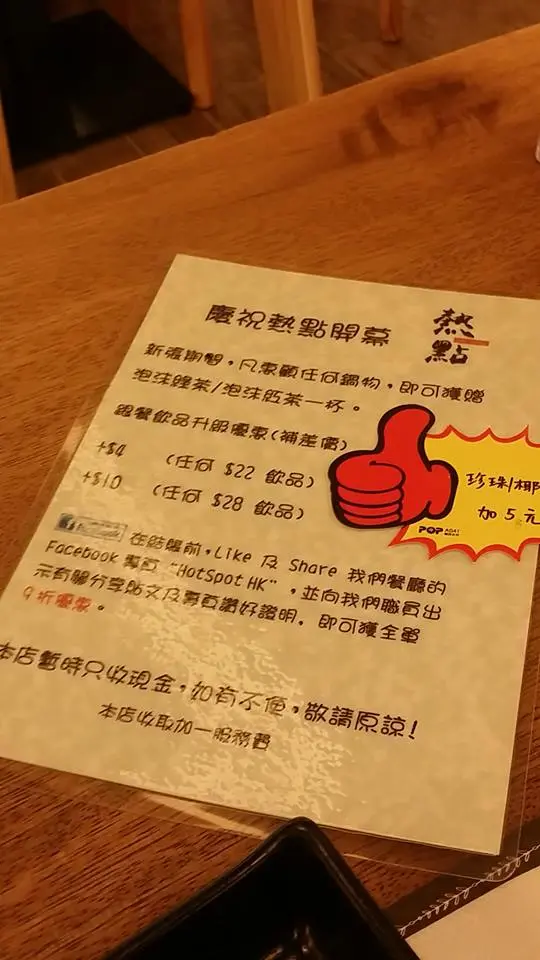 慶祝熱點開幕
熱點
新張期間，凡惠顧任何鍋物，即可獲贈
泡沫綠茶/泡沫紅茶一杯。
跟餐飲品升級優惠(補差價)
+$4 (任何 $22 飲品)
+$10 (任何 $28 飲品)
珍珠/椰
加 5 元
POP
在結賬前，Like 及 Share 我們餐廳的
Facebook 專頁 "HotSpot HK"，並向我們職員出
示有關分享貼文及專頁讚好證明，即可獲全單
9 折優惠。
本店暫時只收現金，如有不便，敬請原諒!
本店收取加一服務費